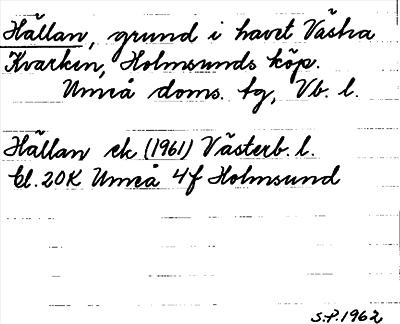 Hällan, grund i havet Västra
Kvarken, Holmsunds köp.
Umeå doms. tg, Vb. l.
Hällan ek (1961) Västerb. l.
bl. 20K Umeå 4f Holmsund
S.P. 1962